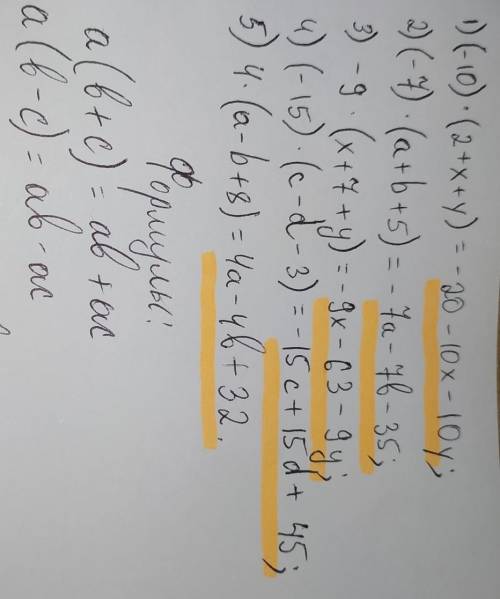 1) (-10) · (2+x+y) = -20 - 10x - 10y;
2) (-7) · (a+b+5) = -7a - 7b - 35;
3) -9 · (x+7+y) = -9x - 63 - 9y;
4) (-15) · (c-d-3) = -15c + 15d + 45;
5) 4 · (a-b+8) = 4a - 4b + 32.
Формулы:
a(b+c) = ab + ac
a(b-c) = ab - ac